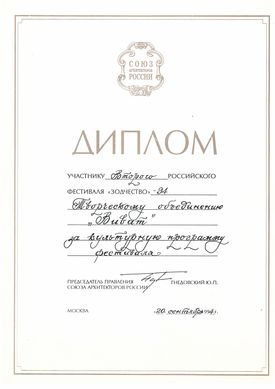 СОЮЗ
АРХИТЕКТОРОВ
РОССИИ
ДИПЛОМ
УЧАСТНИКУ Второго РОССИЙСКОГО
ФЕСТИВАЛЯ «ЗОДЧЕСТВО»-94
Творческому объединению
„Виват"
за культурную программу
фестиваля.
ПРЕДСЕДАТЕЛЬ ПРАВЛЕНИЯ
СОЮЗА АРХИТЕКТОРОВ РОССИИ
ГНЕДОВСКИЙ Ю.П.
МОСКВА
20 сентября